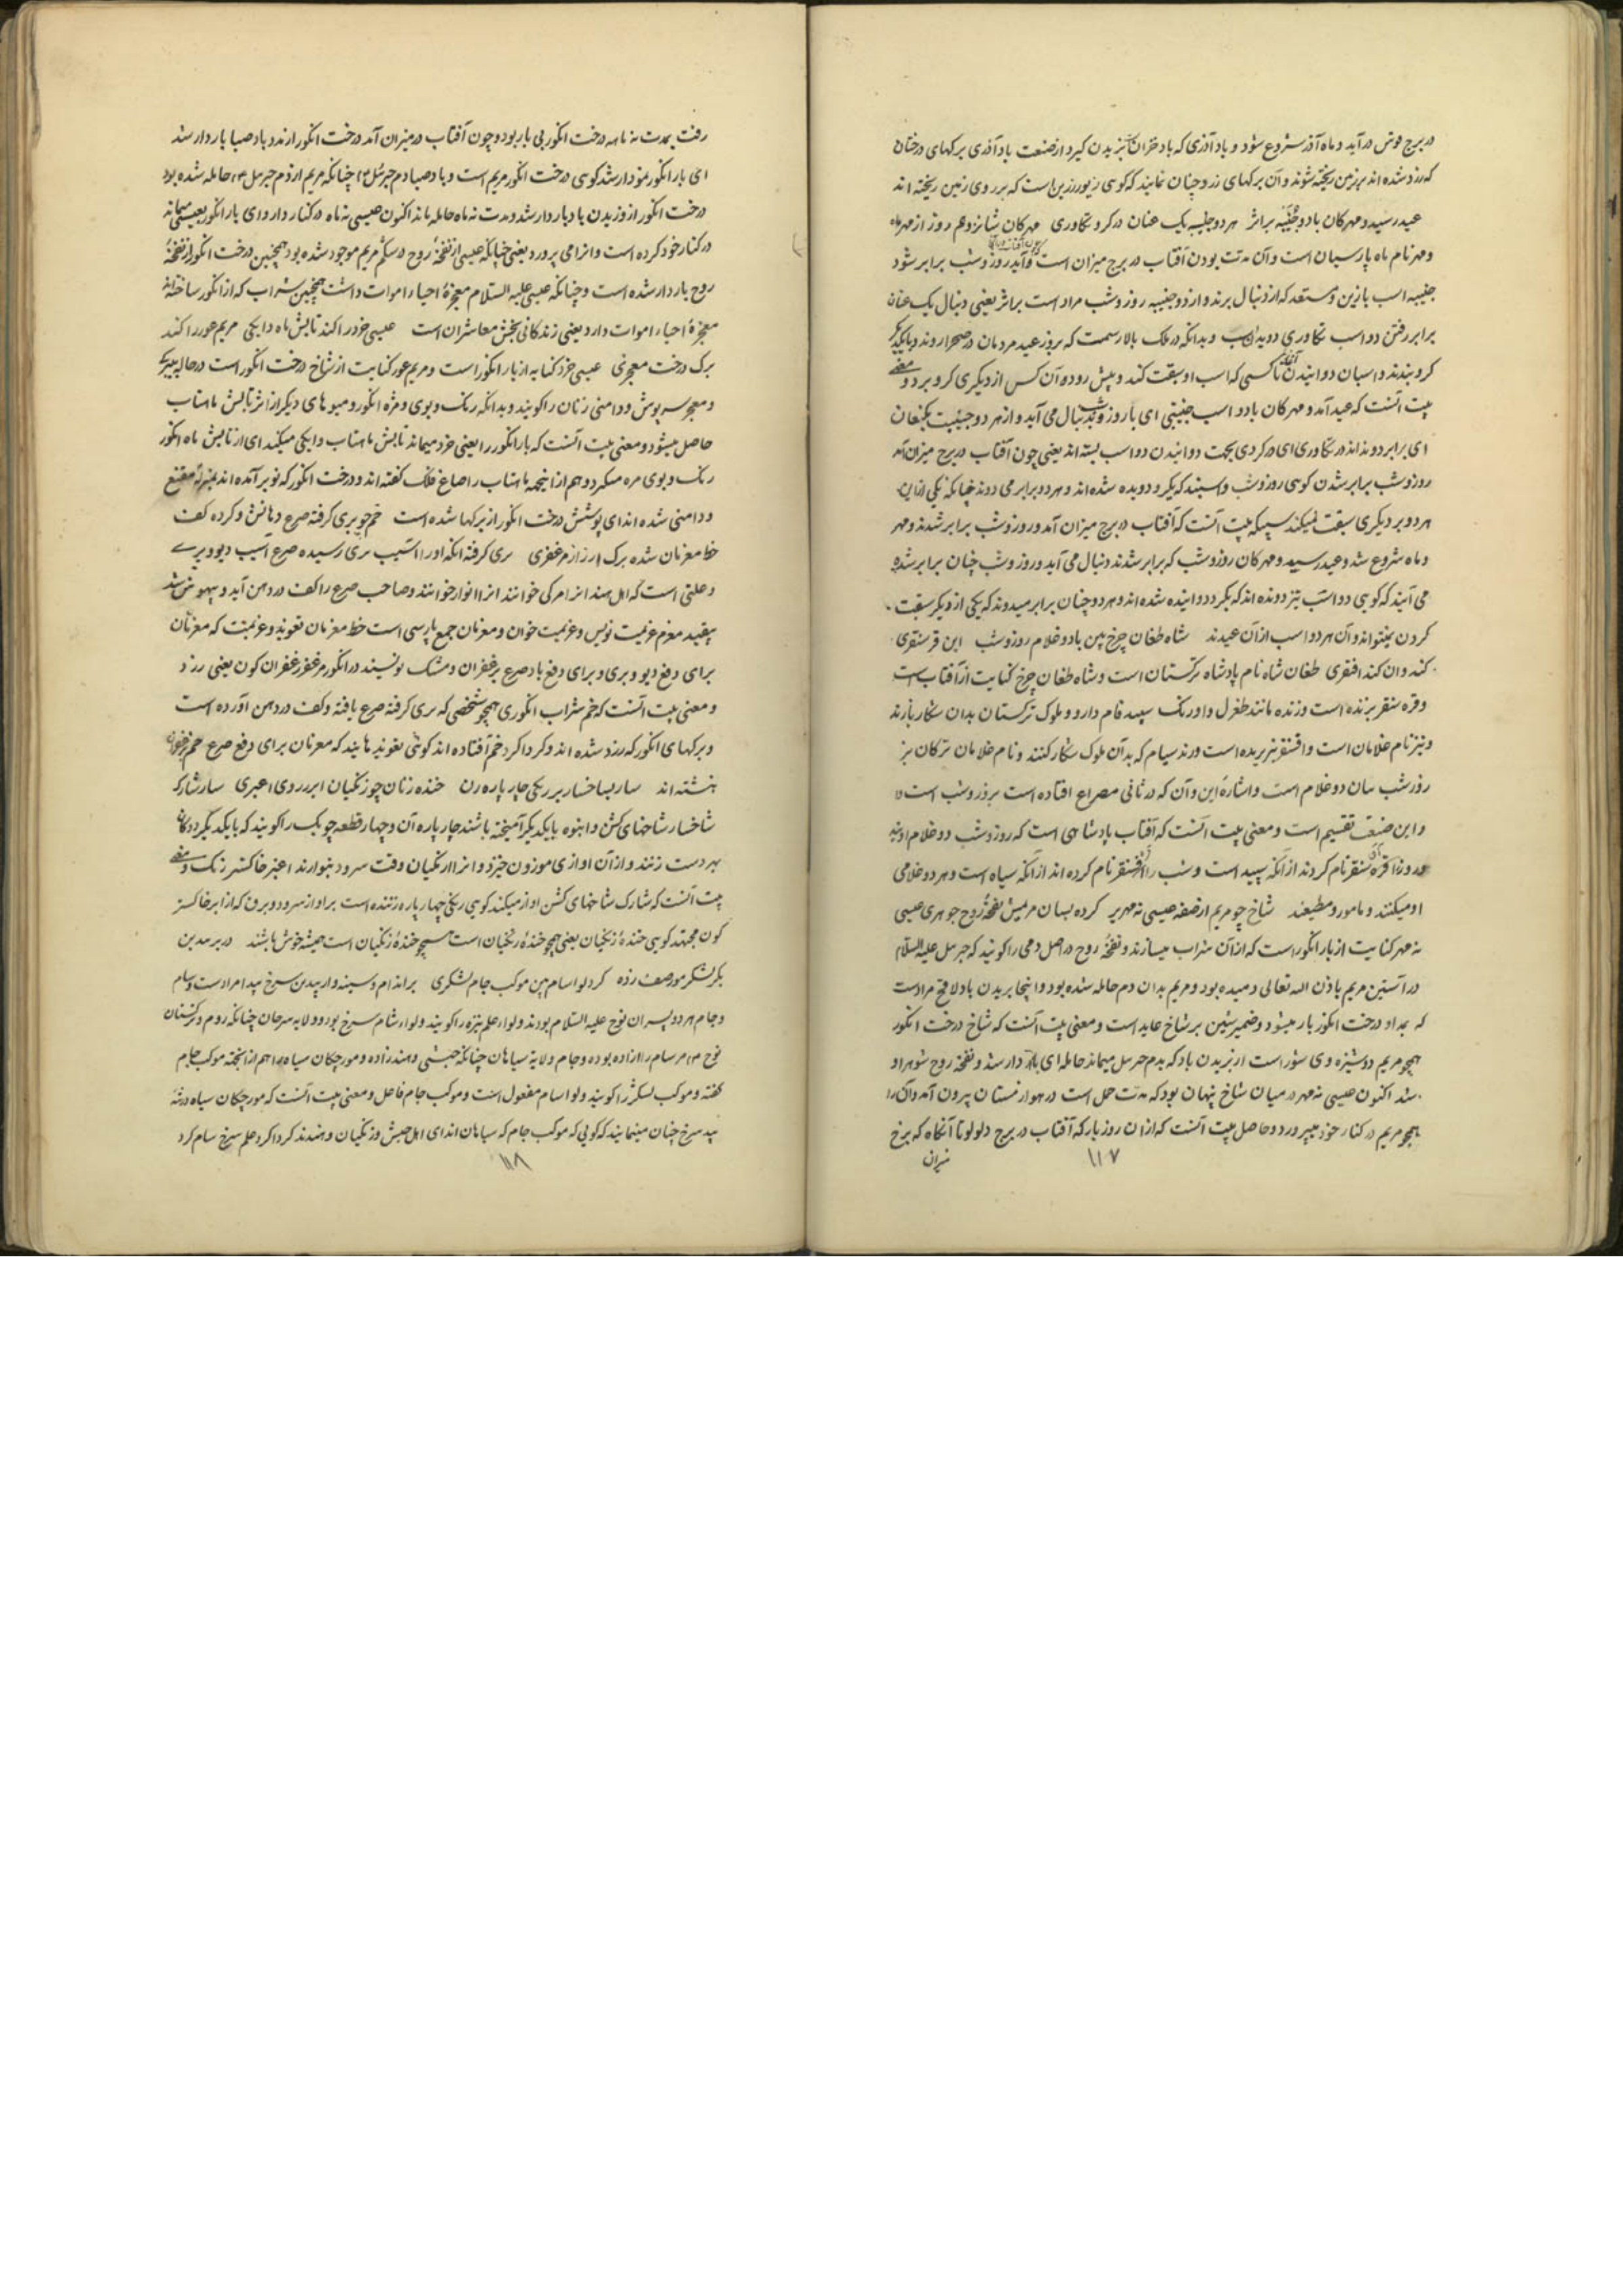 در برج قوس درآید و ماه آذر شروع شود و باد آذری که باد خزان بوزیدن گیرد از صنعت باد آذری برگهای درختان
که زرد شده اند بر زمین ریخته شوند و آن برگهای زرد چنان نمایند که گوئی زیور زرین است که بر روی زمین ریخته اند
عید رسید و مهرکان با دو جنیبه براثر هر دو جنیبه یک عنان در کر و تکاوری مهرکان شانزدهم روز از مهر ماه
و مهر نام ماه پارسیان است و آن مدت بودن آفتاب در برج میزان است و آید روز و شب برابر شود
جنیبه اسب با زین و مستعد که از دنبال برند و از دو جنیبه روز و شب مراد است براثر یعنی دنبال یک عنان
برابر رفتن دو اسب تکاوری دویدن اسب و بدانکه در ملک بالا رسمست که بروز عید مردمان در صحرا روند و بایکدیگر
گرو بندند و اسبان دوانیدن تا کسی که اسب او سبقت کند و پیش رود آن کس از دیگری گرو برد و معنی
بیت آنست که عید آمد و مهرکان با دو اسب جنیبتی ای با روز و شب بدنبال می آید و از هر دو جنیبت یکعنان
ای برابر دونده اند در تکاوری ای در کردی بجهت دوانیدن دو اسب بسته اند یعنی چون آفتاب در برج میزان آمد
روز و شب برابر شدن گوئی روز و شب و اسبند که بگرو دویده شده اند و هر دو برابر می دوند چنانکه یکی ازین
هر دو بر دیگری سبقت نمیکند بیت آنست که آفتاب در برج میزان آمد و روز و شب برابر شدند و مهر
و ماه شروع شد و عید رسید و مهرکان روز و شب که برابر شدند دنبال می آید و روز و شب چنان برابر شده
می آیند که گوئی دو اسب تیز دونده اند که بگرو دوانیده شده اند و هر دو چنان برابر میدوند که یکی از دیگر سبقت
کردن نمیتواند و آن هر دو اسب از آن عیدند شاه طغان چرخ بین با دو غلام روز و شب این قره سنقری
کند و ان کند اقسقری طغان شاه نام پادشاه ترکستان است و شاه طغان چرخ کنایت از آفتاب است
و قره سنقر پرنده است درنده مانند طغرل و او رنگ سپید فام دارد و ملوک ترکستان بدان شکار بازند
و نیز نام غلامان است و اقسنقر نیز پرنده است درنده سیام که بدان ملوک شکار کنند و نام غلامان ترکان نیز
روز شب سان دو غلام است و اشاره این و آن که در ثانی مصراع افتاده است بروز و شب است
و این صنعت تقسیم است و معنی بیت آنست که آفتاب پادشاهی است که روز و شب دو غلام اویند
و روز را قره سنقر نام کردند از آنکه سپید است و شب را اقسنقر نام کرده اند از آنکه سیاه است و هر دو غلامی
او میکنند و مامور و مطیعند شاخ چو مریم از صفه عیسی نه مهر بر کرده بسان مریمش نفخه روح جوهری عیسی
نه مهر کنایت از بار انگور است که از آن شراب میسازند و نفخه روح در اصل دمی را گویند که جبرئیل علیه السلام
در آستین مریم باذن الله تعالی دمیده بود و مریم بدان دم حامله شده بود و اینجا بریدن باد لاقح مرادست
که بداو درخت انگور بار میشود و ضمیر شین بر شاخ عاید است و معنی بیت آنست که شاخ درخت انگور
همچو مریم دوشیزه وی شوراست از بریدن باد که بدم جبرئیل میماند حامله ای بار دار شد و نفخه روح شوهر او
شد اکنون عیسی نه مهر در میان شاخ پنهان بود که مدت حمل است در هوا زمستان بیرون آمد و آنرا
همچو مریم در کنار خود میپرورد و حاصل بیت آنست که از آن روز باز که آفتاب در برج دلو لوتا آنگاه که برخ
میزان
۱۱۷
رفت بمدت نه ماهه درخت انگور بی بار بود و چون آفتاب در میزان آمد درخت انگور از ندو باد صبا بار دار شد
ای بار انگور نمودار شد گوئی درخت انگور مریم است و باد صبا دم جبرئیل چنانکه مریم از دم جبرئیل حامله شده بود
درخت انگور از وزیدن باد بار دار شد و مدت نه ماه حامله ماند اکنون عیسی نه ماه در کنار دارد ای بار انگور بعیسی میماند
در کنار خود کرده است و انرا می پرورد یعنی چنانکه عیسی از نفخه روح در شکم مریم موجود شده بود همچنین درخت انگور از نفخه
روح بار دار شده است و چنانکه عیسی علیه السلام معجزه احیاء اموات داشت همچنین شراب که از انگور ساخته اند
معجزه احیاء اموات دارد یعنی زندگانی بخش معاشران است عیسی خرد را کند تابش ماه دایگی مریم عور را کند
برگ درخت معجری عیسی خرد کنایه از بار انگور است و مریم عور کنایت از شاخ درخت انگور است در حالیکه
و معجر سرپوش و دامنی زنان را گویند و بدانکه رنگ و بوی و مزه انگور و میوهای دیگر از اثر تابش ماهتاب
حاصل میشود و معنی بیت آنست که بار انگور را یعنی خرد میماند تابش ماهتاب دایگی میکند ای از تابش ماه انگور
رنگ و بوی مزه میگیرد و هم از اینجهه ماهتاب را صباغ فلک گفته اند و درخت انگور که نو بر آمده اند بمنزله مقنع
و دامنی شده اند ای پوشش درخت انگور از برگها شده است خم چو پری گرفته صرع دهانش و کرده کف
خط معزمان شده برگ رز از مزعفری پری گرفته آنکه او را آسیب پری رسیده صرع آسیب دیو و پری
و علتی است که اهل هند انرا مرگی خوانند انرا انوار خوانند و صاحب صرع را کف در دهن آید و بیهوش شد
بیفتد معزم عزیمت نویس و عزیمت خوان و معزمان جمع پارسی است خط معزمان تعوید و عزیمت که معزمان
برای دفع دیو و پری و برای دفع باد صرع بزعفران و مشک نویسند در انگور مزعفر زعفران گون یعنی زرد
و معنی بیت آنست که خم شراب انگوری همچو شخصی که پری گرفته صرع یافته و کف در دهن آورده است
و برگهای انگور که زرد شده اند و گرداگرد خم افتاده اند گوئی تعویذهایند که معزمان برای دفع صرع خم بزعفران
نبشته اند سار بشاخسار بر زنگی چار پاره زن خنده زنان چو زنگیان ابر ز روی اغبری سار شارک
شاخسار شاخهای کشن و انبوه بایکدیگر آمیخته باشند چار پاره آن دو چهار قطعه چوبک را گویند که بایکدیگر دوگان
بهر دست زنند و از آن اوازی موزون خیزد و انرا زنگیان وقت سرود بنوازند اغبر خاکستر رنگ و معنی
بیت آنست که شارک شاخهای کشن اواز میکند گوئی زنگی چهار پاره زننده است بر اواز سرود و برق که از ابر خاکستر
گون میجهد گوئی خنده زنگیان یعنی همچو خنده زنگیان است همچو خنده زنگیان است همیشه خوش باشند در بر بیدبن
نگر لشکر مور صف زده گرد لوا سام بین موکب حام لشکری بر اندام و سینه و اربیدبن سرخ بید مراد است و سام
و حام هر دو پسران نوح علیه السلام بودند و لواء علم نیزه را گویند و لواء شام سرخ بود و ولایه سرخان چنانکه روم و ترکستان
نوح مر سام را زاده بوده و حام ولایة سیاهان چنانکه حبشی و هند زاده و مورچگان سیاه را هم از اینجهه موکب حام
گفته و موکب لشکر را گویند و لوا سام مفعول است و موکب حام فاعل و معنی بیت آنست که مورچگان سیاه در تنه
بید سرخ چنان مینمایند که گوئی که موکب حام که سیاهان اند ای اهل حبش و زنگیان و هندند گرداگرد علم سرخ سام گرد
۱۱۸